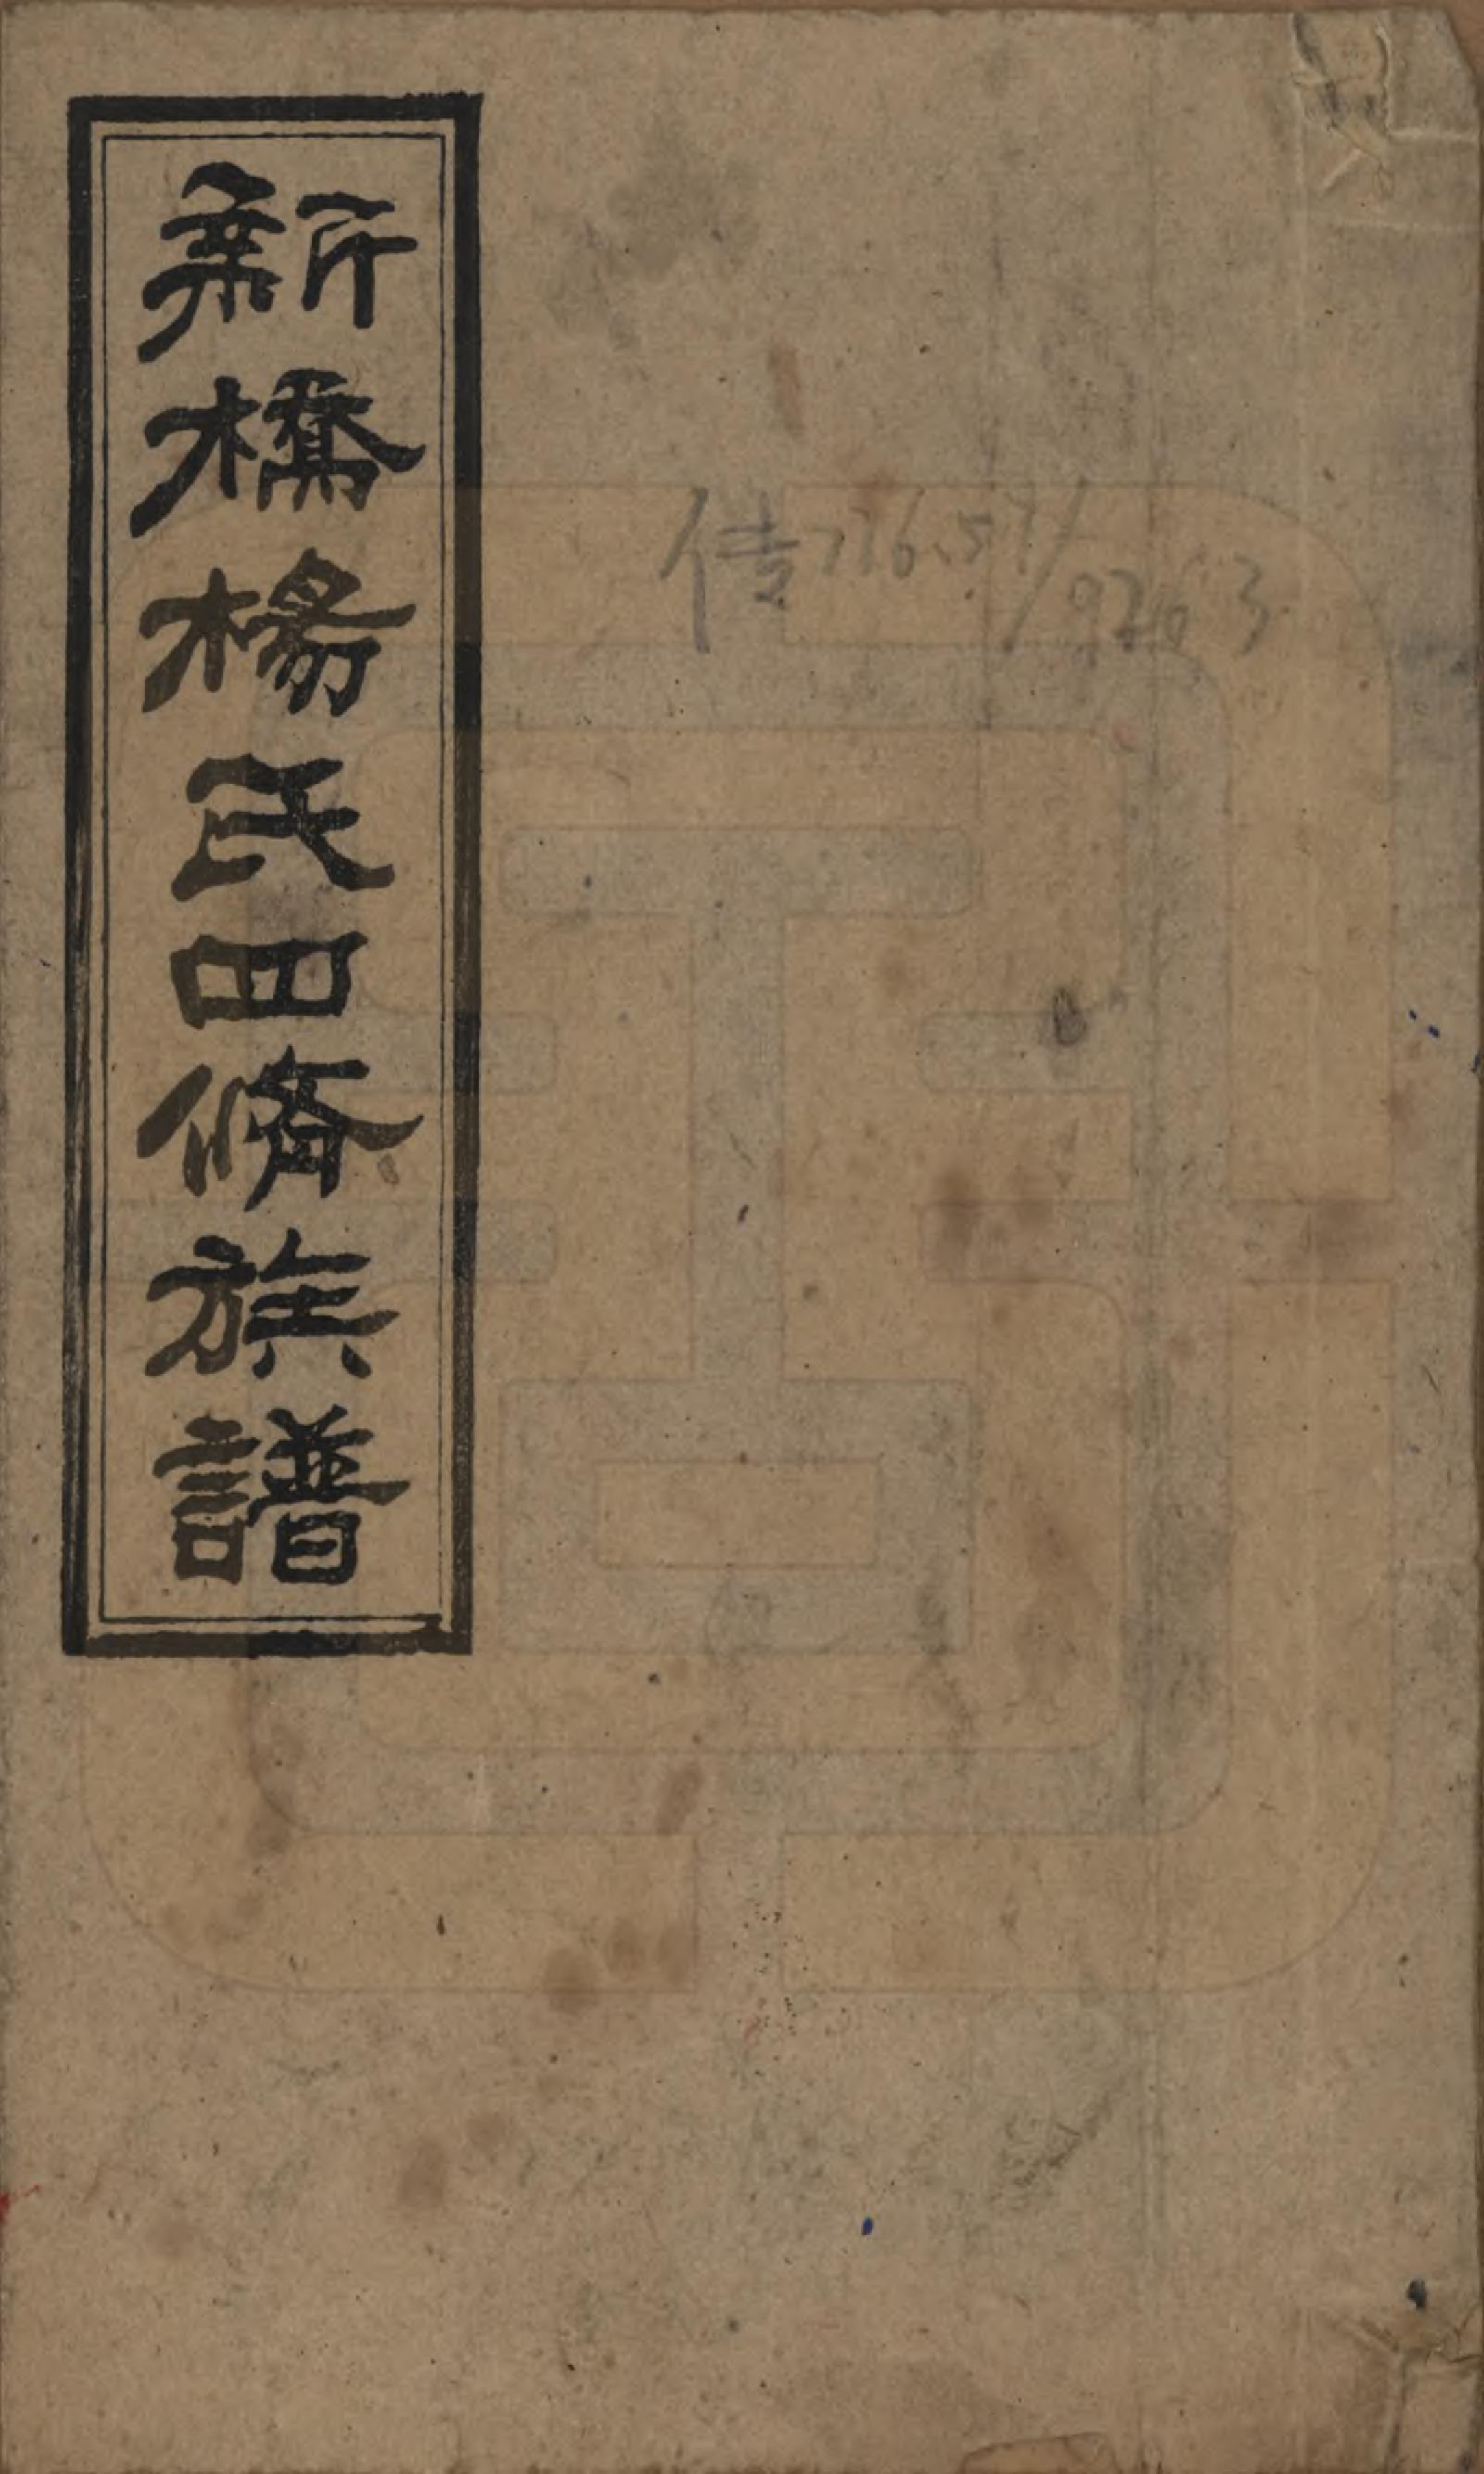 新橋楊氏四脩族譜
传776.57/
9263